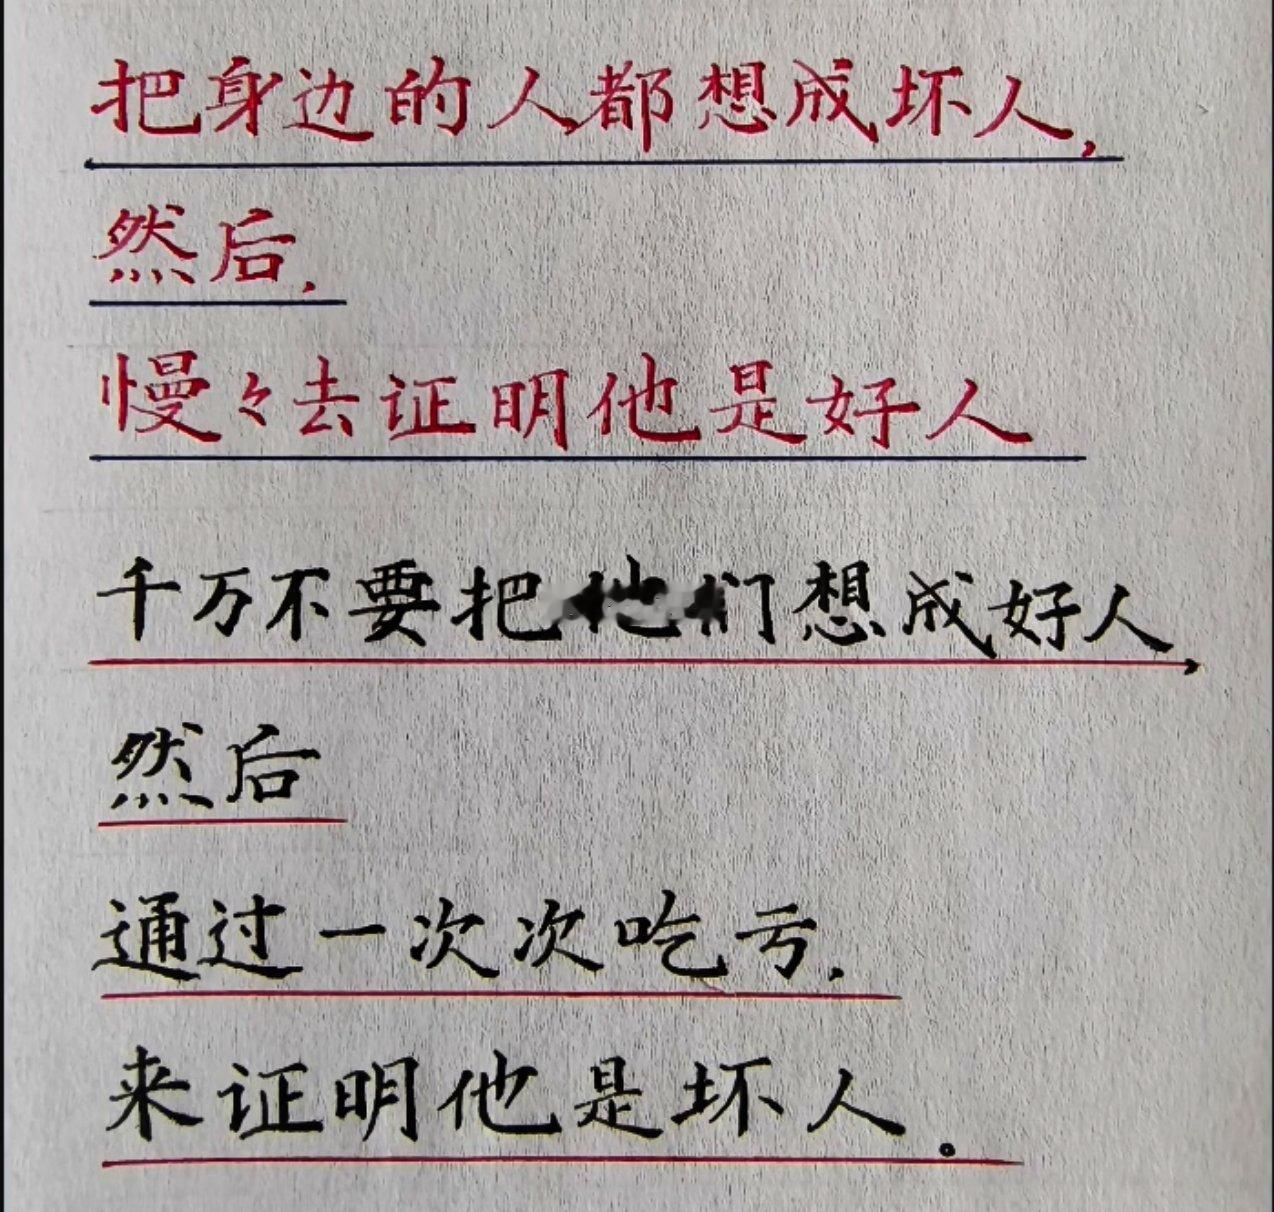 把身边的人都想成坏人,
然后,
慢々去证明他是好人
千万不要把他们想成好人
然后
通过一次次吃亏,
来证明他是坏人。